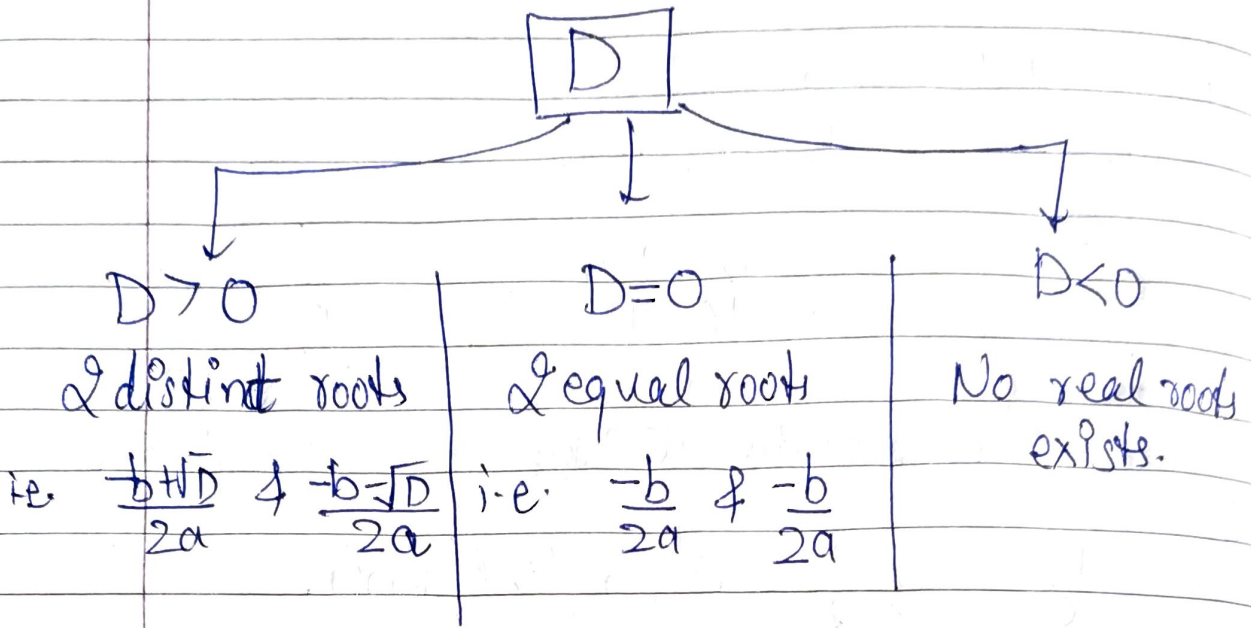 D
D>0
2 distinct roots
i.e. (-b+√D)/2a & (-b-√D)/2a
D=0
2 equal roots
i.e. -b/2a & -b/2a
D<0
No real roots
exists.